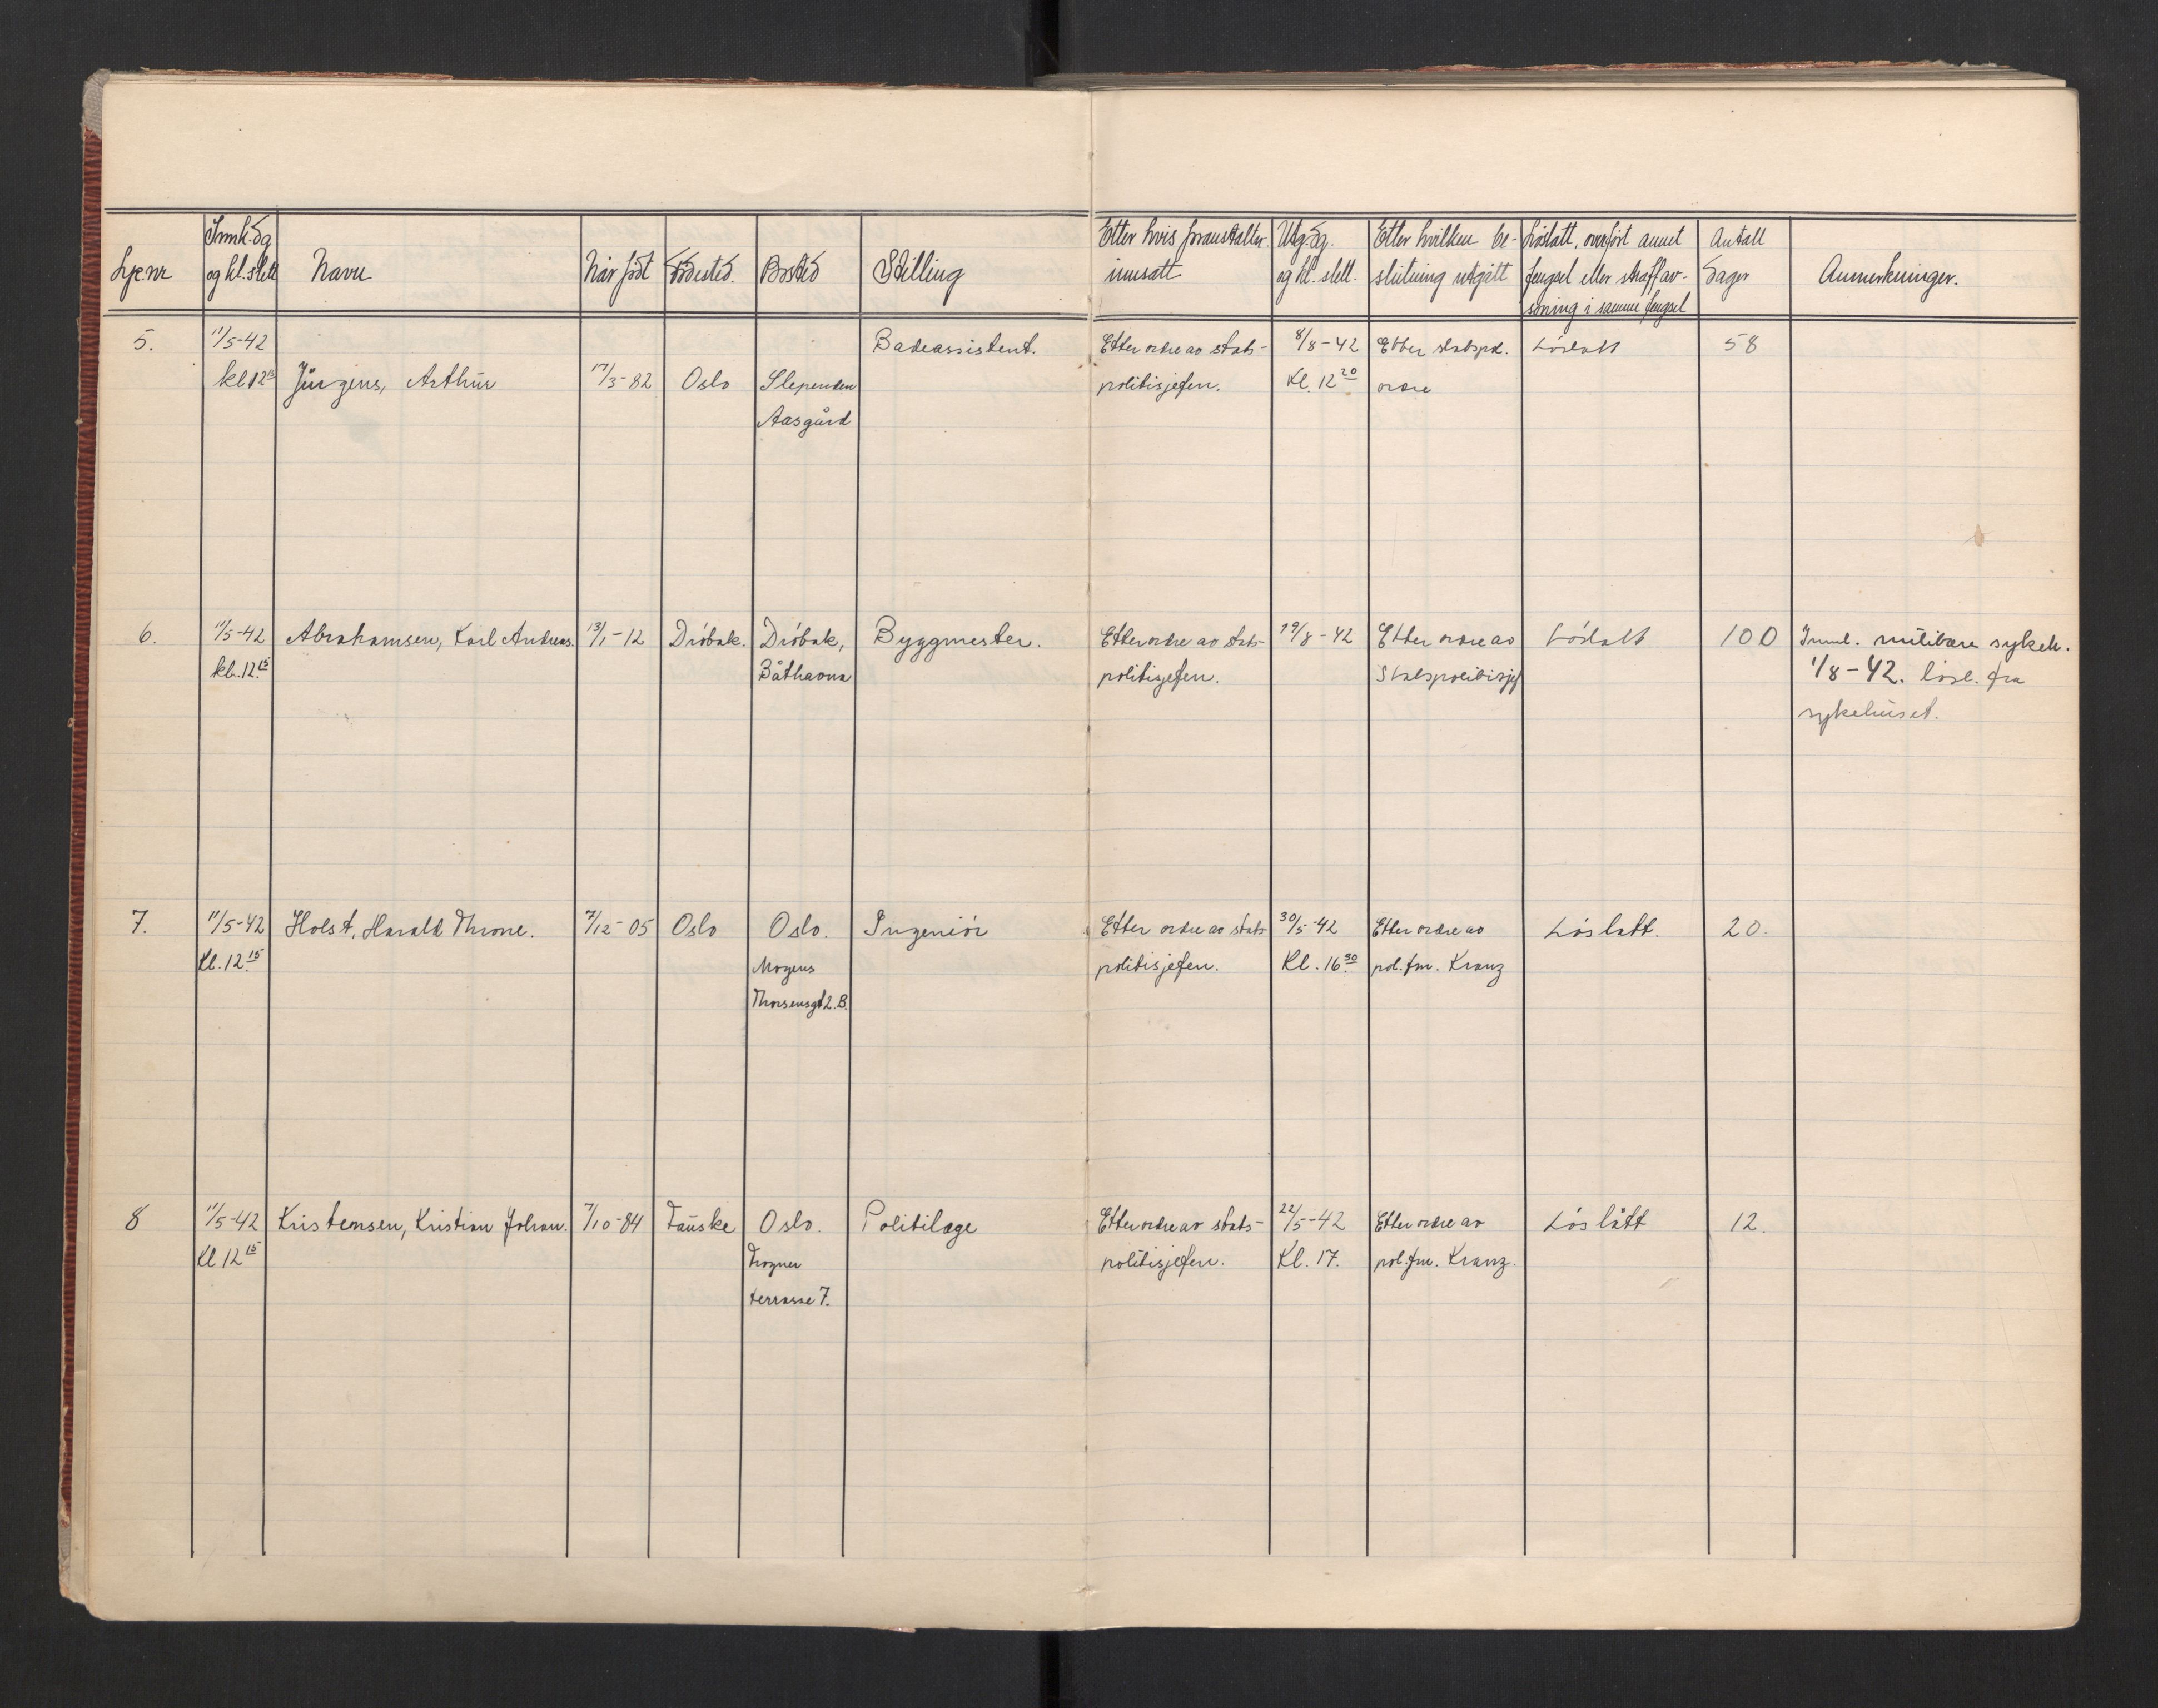 Lpe.nr Innk. dg og kl.slett Navn Når født Fødested. Bosted Stilling Etter hvis foranstaltn. innsatt Utg. dg. og kl. slett. Etter hvilken beslutning utgått Løslatt, overført annet fengsel eller straffavsoning i samme fengsel Antall dager Anmerkninger.
5. 11/5-42 Badeassistent. Etter ordre av stats- 8/8-42 Etter statspol. Löslatt 58
kl 12 15 Jürgens, Arthur 17/3-82 Oslo Slependen politisjefen. Kl. 12 20 ordre
Aasgård
6. 11/5-42 Abrahamsen, Karl Andreas. 13/1-12 Dröbak. Dröbak, Byggmester. Etter ordre av stats- 19/8-42 Etter ordre av Löslatt 100 Innl. militære sykeh.
kl. 12 15 Båthavna politisjefen. Statspolitisjef 1/8-42. lösl. fra
sykehuset.
7. 11/5-42 Holst, Harald Throne. 7/12-05 Oslo Oslo. Ingeniör Etter ordre av stats- 30/5-42 Etter ordre av Löslatt. 20.
Kl. 12 15 Mogens politisjefen. Kl. 16 30 pol.fm. Kranz
Thorsensgt 2. B.
8 11/5-42 Kristensen, Kristian Johan. 7/10-84 Fauske Oslo. Politilæge Etter ordre av stats- 22/5-42 Etter ordre av Löslått 12.
Kl 12 15 Frogner politisjefen. Kl. 17. pol.fm. Kranz.
terrasse 7.